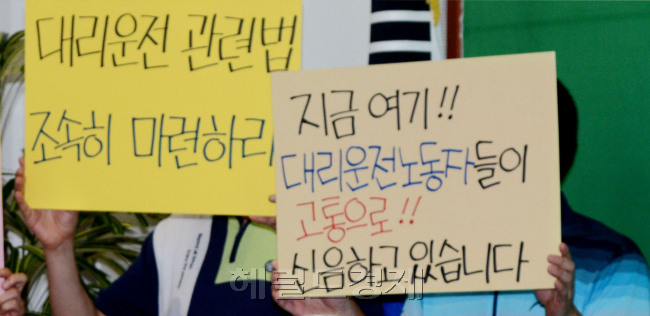 대리운전 관련법
조속히 마련하라
지금 여기!!
대리운전노동자들이
고통으로!!
신음하고 있습니다
헤럴드경제